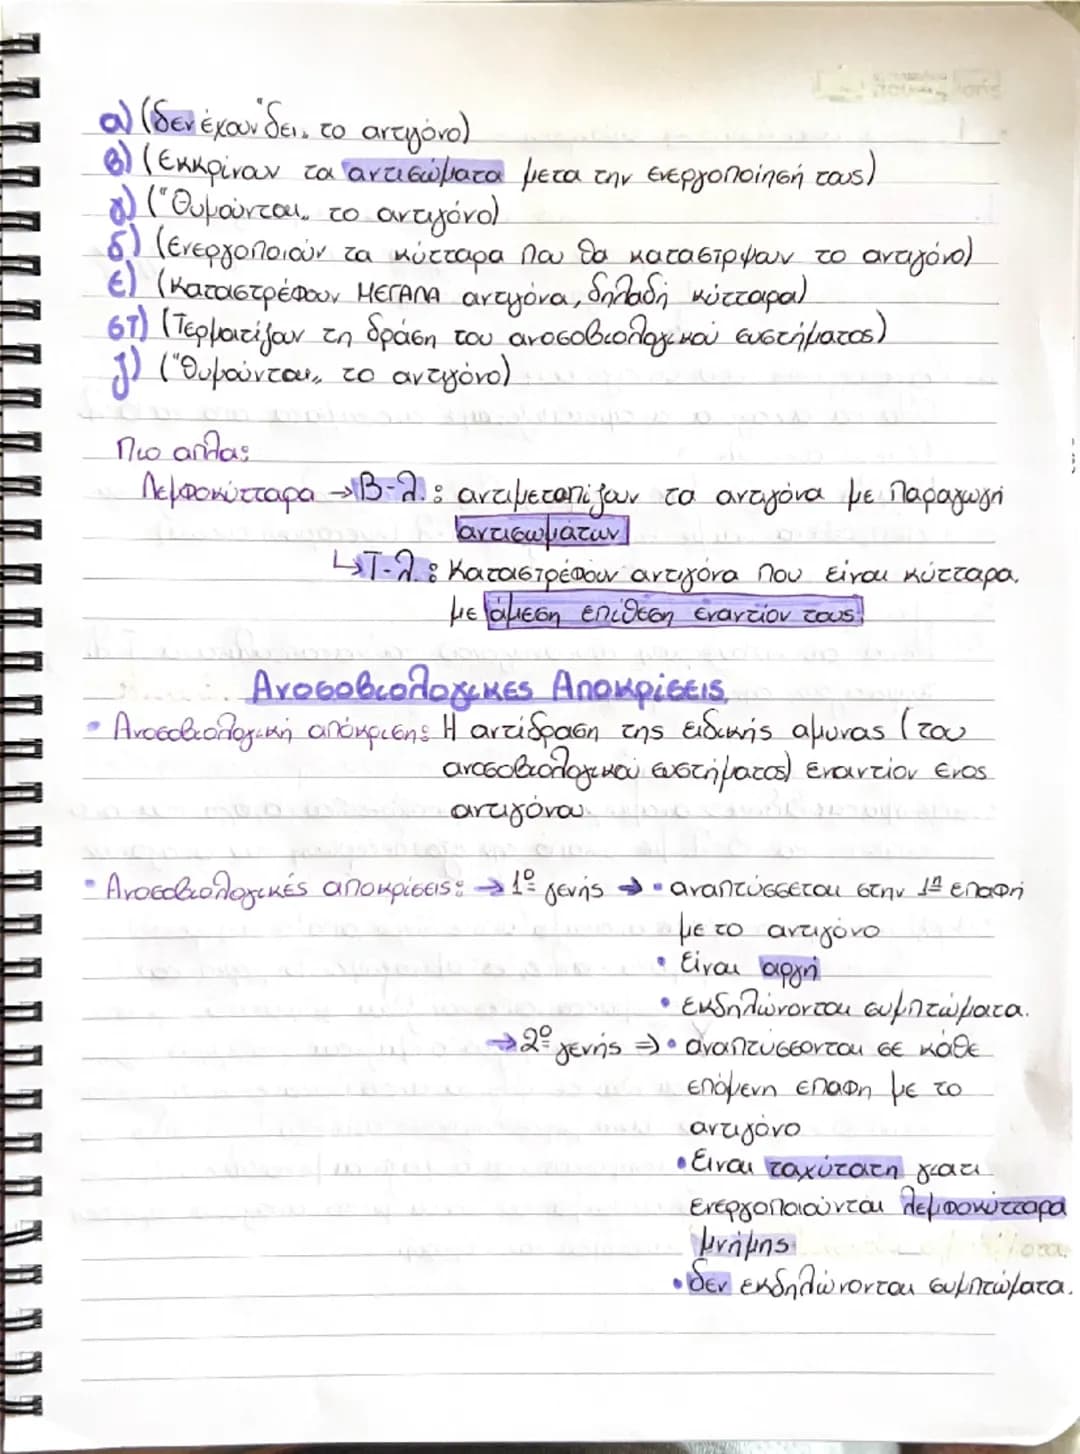 α) (δεν έχουν "δει" το αντιγόνο)
β) (Εκκρίνουν τα αντισώματα μετα την ενεργοποίησή τους)
γ) ("Θυμούνται" το αντιγόνο)
δ) (Ενεργοποιούν τα κύτταρα που θα καταστρψουν το αντιγόνο)
ε) (καταστρέφουν ΜΕΓΑΛΑ αντιγόνα, δηλαδή κύτταρα)
στ) (Τερματίζουν τη δράση του ανοσοβιολογικού συστήματος)
ζ) ("Θυμούνται" το αντιγόνο)
Πιο απλα:
Λεμφοκύτταρα → Β-λ. : αντιμετωπίζουν τα αντιγόνα με παραγωγή
αντισωμάτων
↳ Τ-λ. : Καταστρέφουν αντιγόνα που είναι κύτταρα,
με άμεση επίθεση εναντίον τους.
Ανοσοβιολογικές Αποκρίσεις
• Ανοσοβιολογική απόκριση: Η αντίδραση της ειδικής αμυνας (του
ανοσοβιολογικού συστήματος) εναντίον ενος
αντιγόνου.
• Ανοσοβιολογικές αποκρίσεις: → 1º γενής → • αναπτύσσεται στην 1η επαφή
με το αντιγόνο
• Είναι αργή
• εκδηλώνονται συμπτώματα.
→ 2º γενής ⇒ • αναπτυσσονται σε κάθε
επόμενη επαφη με το
αντιγόνο
• Είναι ταχύτατη γιατι
ενεργοποιούνται λεμφοκύτταρα
μνήμης
• δεν εκδηλώνονται συμπτώματα.